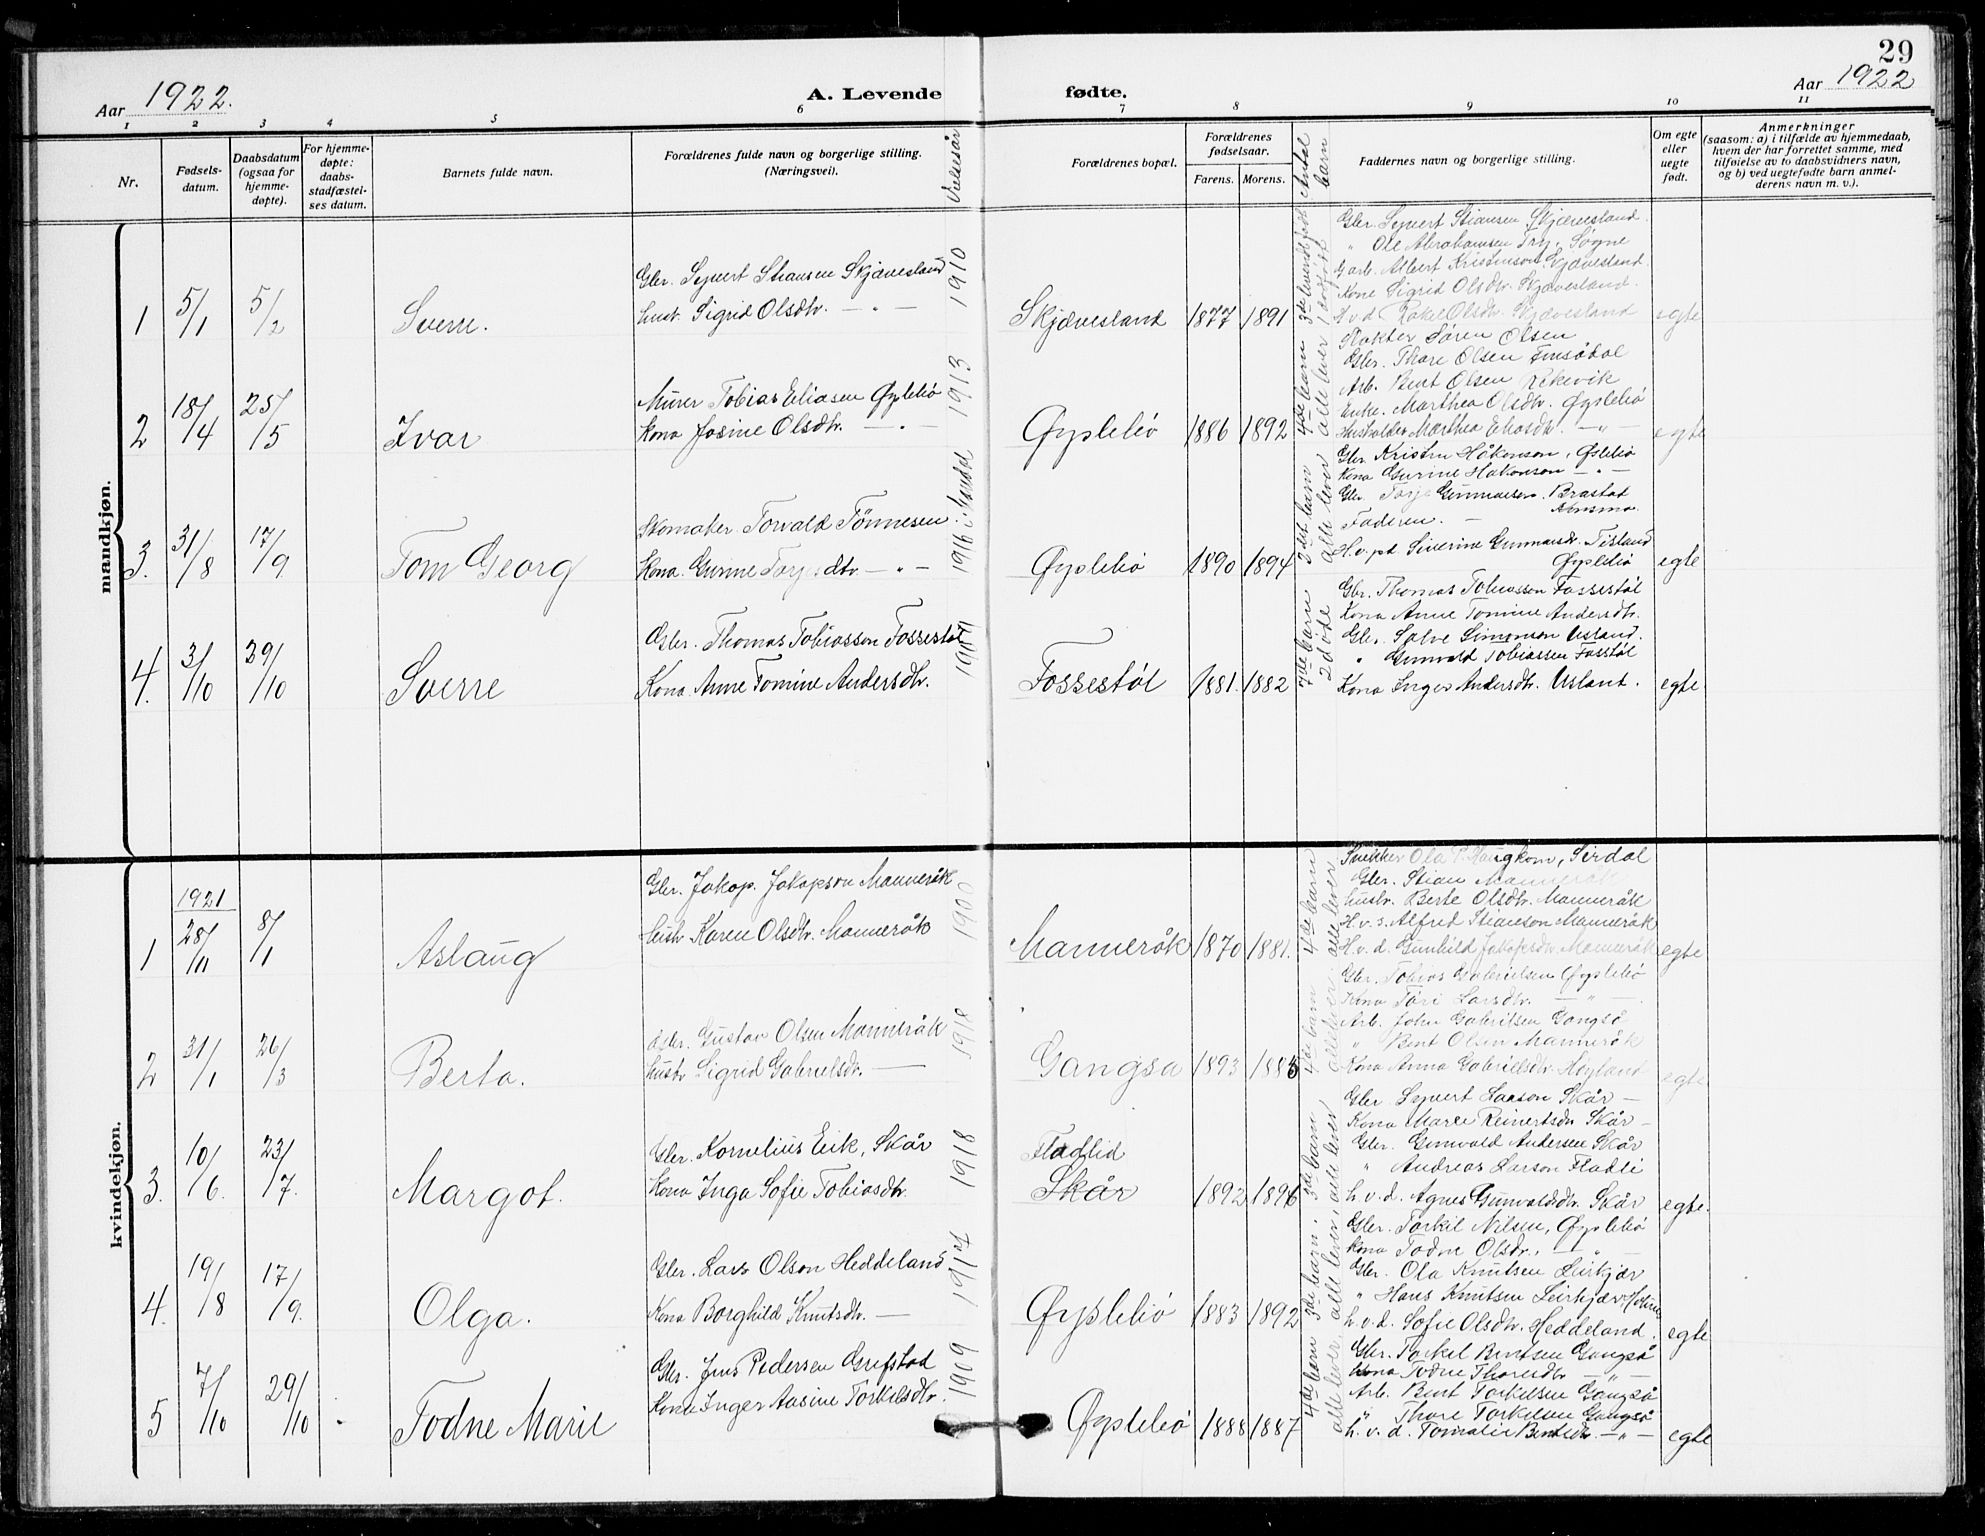 29
Aar 1922.
A. Levende fødte.
Aar 1922
1 2 3 4 5 6 7 8 9 10 11
Nr.
Fødsels-
datum.
Daabsdatum
(ogsaa for
hjemme-
døpte).
For hjemme-
døpte:
daabs-
stadfæstel-
ses datum.
Barnets fulde navn.
Forældrenes fulde navn og borgerlige stilling.
(Næringsvei).
Vielsesår
Forældrenes bopæl.
Forældrenes
fødselsaar.
Farens. Morens.
Antal
barn
Faddernes navn og borgerlige stilling.
Om egte
eller
uegte
født.
Anmerkninger
(saasom: a) i tilfælde av hjemmedaab,
hvem der har forrettet samme, med
tilføielse av to daabsvidners navn,
og b) ved uegtefødte barn anmel-
derens navn m. v.).
mandkjøn.
1 5/1 5/2 Sverre.
Gbr. Syvert Stiansen Skjævesland
hust. Sigrid Olsdtr. — " —
1910
Skjævesland 1877 1891
3de levende født
1 dødfødt
Gbr. Syvert Stiansen, Skjævesland.
" Ole Abrahamsen Try, Søgne
Garb. Albert Kristenson Skjævesland.
Kone Sigrid Olsdtr. Skjævesland.
H.v.d. Rakel Olsdtr. Skjævesland
egte
2 18/4 25/5 Ivar
Murer Tobias Eliasen Øyslebø
Kona Josine Olsdtr. — " —
1913
Øyslebø 1886 1892
4de barn
alle lever
Røkter Søren Olsen
Gbr. Thore Olsen Finsådal
Arb. Bent Olsen Rekevik
Enke. Marthea Olsdtr. Øyslebø
Marthea Eliasdtr. — " —
egte
3. 31/8 17/9 Tom Georg
Skomaker Torvald Tønnesen.
Kona. Gurine Torjesdtr. — " —
1916 i Mandal
Øyslebø 1890 1894
2det barn
alle lever
Gbr. Kristen Håkonson, Øslebø
Kona Gurine Håkonson — " —
Gbr. Torje Gunnarsen. Brastad
Konsmo.
Faderen. —
H.v.pt Siverine Gunnarsdtr. Tisland
Øyslebø
egte
4. 3/10 29/10 Sverre
Gbr. Thomas Tobiasson Fossestøl
Kona. Anne Tomine Andersdtr.
Fossestøl 1881. 1882
7de barn
2 døde
Gbr. Thomas Tobiasson Fossestøl
Kona Anne Tomine Andersdtr.
Gbr. Salve Simonson Usland.
" Gunvald Tobiassen Fosstøl
Kona Inger Andersdtr. Usland.
egte
kvindekjøn.
1 1921 28/11 8/1 Aslaug
Gbr. Jakop. Jakopson Manneråk
Hustr Karen Olsdtr. Manneråk
1900
Manneråk 1870 1881.
4de barn
alle lever
Snekker Ola P. Haugkom, Sirdal
Gbr. Stian Manneråk
hustr. Berte Olsdtr. Manneråk
H.v.s. Alfred Stianson Manneråk
H.v.d. Gunhild Jakopsdtr. Manneråk
egte
2 31/1 26/3 Berta.
Gbr. Gustav Olsen Manneråk
hustr Sigrid Gabrielsdtr. —
1918
Gangså 1893 1885
4de barn
alle lever
Gbr. Tobias Gabrielsen Øyslebø
Kona Tøri Larsdtr. — " —
Arb. John Gabrielsen Gangså
" Bent Olsen Manneråk
Kona Anna Gabrielsdtr. Høyland
egte
3. 10/6. 23/7. Margot.
Gbr. Kornelius Eik, Skår
Kona Inga Sofie Tobiasdtr.
1918
Fladlid
Skår 1892 1896
3de barn.
alle lever
Gbr Syvert Hansen Skår —
Kona Maren Reinertsdtr Skår —
Gbr. Gunvald Andersen Skår
" Andreas Larson Fladli
h.v.d. Agnes Gunvaldsdtr. Skår
egte.
4. 19/8 17/9. Olga.
Gbr. Lars Olson Heddeland
Kona Borghild Knutsdtr. —
1917
Øyslebø 1883 1892
3de barn.
alle lever
Gbr. Torkil Nilsen, Øyslebø
Kona Todne Olsdtr. — " —
Gbr. Ola Knutsen Leirkjær
" Hans Knutsen Leirkjær, Holum
h.v.d. Sofie Olsdtr. Heddeland.
egte
5 7/10 29/10 Todne Marie
Gbr. Jens Pedersen Grefstad
Kona Inger Aasine Torkelsdtr.
1909
Øyslebø 1888 1887
4de barn
alle lever
Gbr. Torkel Bentsen Gangså
Kona Todne Thoresdtr — " —
Arb. Bent Torkelsen Gangså
" Thore Torkelsen Gangså
h.v.d. Tomalie Bentsdtr. — " —
egte